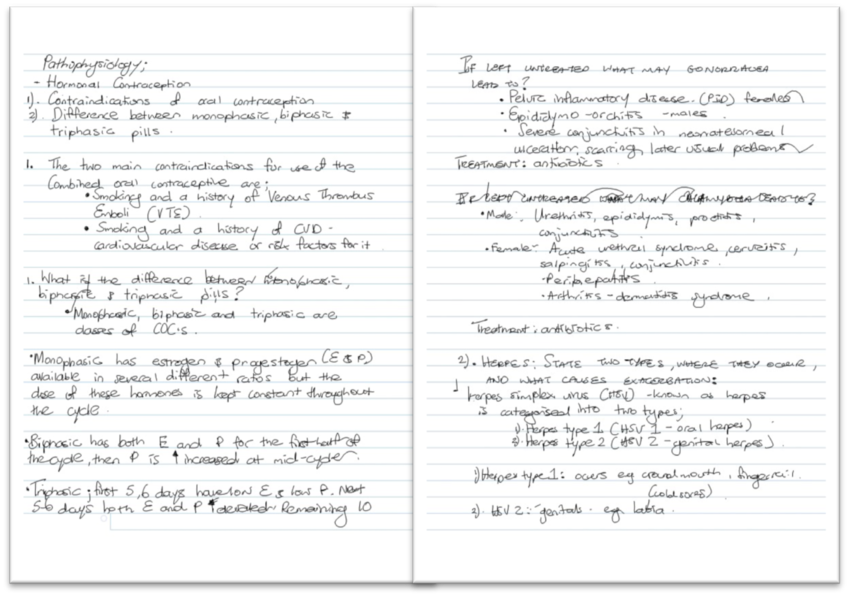 Pathophysiology;
- Hormonal Contraception
1). Contraindications of oral contraception
2). Difference between monophasic, biphasic &
triphasic pills.
1. The two main contraindications for use of the
Combined oral contraceptive are;
• Smoking and a history of Venous Thrombus
Emboli (VTE).
• Smoking and a history of CVD -
cardiovascular disease or risk factors for it
1. What is the difference between Monophasic,
biphasic & triphasic pills?
• Monophasic, biphasic and triphasic are
classes of COC's.
• Monophasic has estrogen & progestogen (E & P)
available in several different ratios but the
dose of these hormones is kept constant throughout
the cycle.
• Biphasic has both E and P for the first half of
the cycle, then P is ↑ increased at mid-cycle.
• Triphasic; first 5,6 days have low E & low P. Next
5-6 days both E and P ↑ elevated. Remaining 10
IF LEFT UNTREATED WHAT MAY GONORRHAEA
LEAD TO?
• Pelvic inflammatory disease. (PID) females
• Epididymo-orchitis - males
• Severe conjunctivitis in
ulceration, scarring, later visual problems
TREATMENT: antibiotics.
IF LEFT UNTREATED WHAT MAY CHLAMYDIA LEAD TO?
• Male: Urethritis, epididymis,
conjunctivitis.
• Female: Acute urethral syndrome, cervicitis,
salpingitis, conjunctivitis.
• Perihepatitis
• Arthritis - dermatitis syndrome.
Treatment: antibiotics.
2). HERPES: STATE TWO TYPES, WHERE THEY OCCUR,
AND WHAT CAUSES EXACERBATION:
herpes simplex virus (HSV) - known as herpes
is categorised into two types;
1). Herpes type 1 (HSV 1 - oral herpes)
2). Herpes type 2 (HSV 2 - genital herpes).
1) Herpes type 1: occurs eg around mouth, fingernail.
(cold sores)
2). HSV 2: genitals. eg labia.